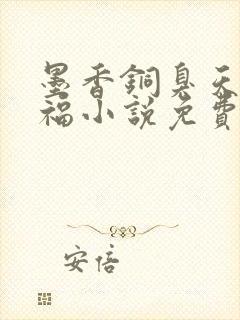 墨香銅臭天
福小說免費
安倍